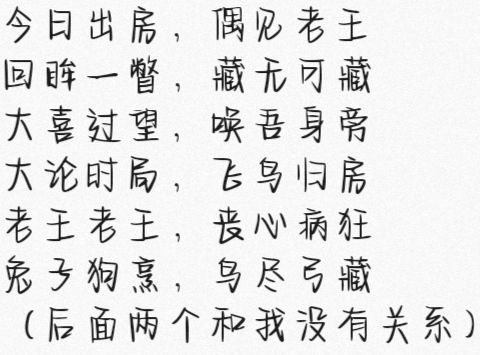 今日出房，偶见老王
回眸一瞥，藏无可藏
大喜过望，唤吾身旁
大论时局，飞鸟归房
老王老王，丧心病狂
兔子狗烹，鸟尽弓藏
（后面两个和我没有关系）